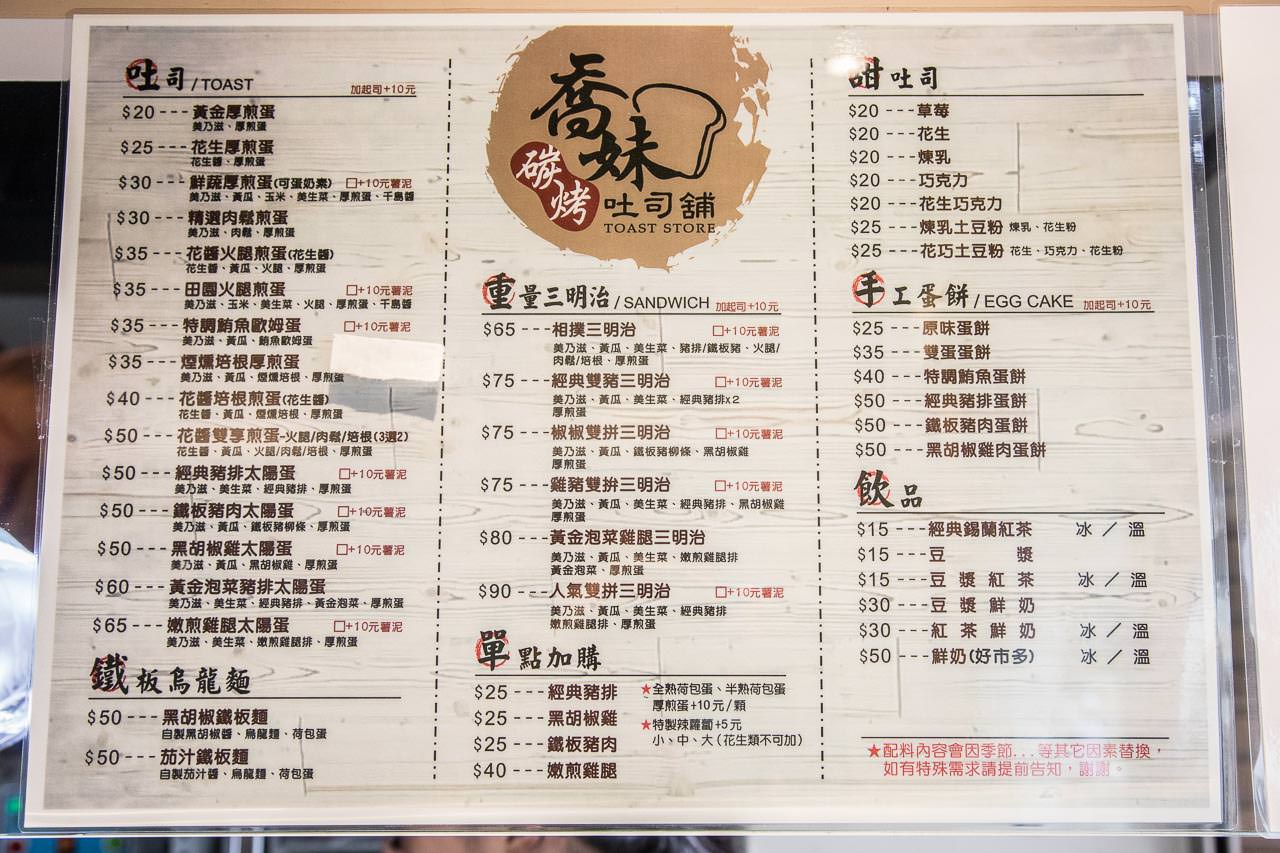 吐司/TOAST 加起司+10元
$20---黃金厚煎蛋
美乃滋、厚煎蛋
$25---花生厚煎蛋
花生醬、厚煎蛋
$30---鮮蔬厚煎蛋(可蛋奶素) □+10元薯泥
美乃滋、黃瓜、玉米、美生菜、厚煎蛋、千島醬
$30---精選肉鬆煎蛋
美乃滋、肉鬆、厚煎蛋
$35---花醬火腿煎蛋(花生醬)
花生醬、黃瓜、火腿、厚煎蛋
$35---田園火腿煎蛋 □+10元薯泥
美乃滋、玉米、美生菜、火腿、厚煎蛋、千島醬
$35---特調鮪魚歐姆蛋 □+10元薯泥
美乃滋、黃瓜、鮪魚歐姆蛋
$35---煙燻培根厚煎蛋
美乃滋、黃瓜、煙燻培根、厚煎蛋
$40---花醬培根煎蛋(花生醬)
花生醬、黃瓜、煙燻培根、厚煎蛋
$50---花醬雙享煎蛋-火腿/肉鬆/培根(3選2)
花生醬、黃瓜、火腿/肉鬆/培根、厚煎蛋
$50---經典豬排太陽蛋 □+10元薯泥
美乃滋、美生菜、經典豬排、厚煎蛋
$50---鐵板豬肉太陽蛋 □+10元薯泥
美乃滋、黃瓜、鐵板豬柳條、厚煎蛋
$50---黑胡椒雞太陽蛋 □+10元薯泥
美乃滋、黃瓜、黑胡椒雞、厚煎蛋
$60---黃金泡菜豬排太陽蛋
美乃滋、美生菜、經典豬排、黃金泡菜、厚煎蛋
$65---嫩煎雞腿太陽蛋 □+10元薯泥
美乃滋、美生菜、嫩煎雞腿排、厚煎蛋
鐵板烏龍麵
$50---黑胡椒鐵板麵
自製黑胡椒醬、烏龍麵、荷包蛋
$50---茄汁鐵板麵
自製茄汁醬、烏龍麵、荷包蛋
喬妹
碳烤
吐司舖
TOAST STORE
重量三明治/SANDWICH 加起司+10元
$65---相撲三明治 □+10元薯泥
美乃滋、黃瓜、美生菜、豬排/鐵板豬、火腿/
肉鬆/培根、厚煎蛋
$75---經典雙豬三明治 □+10元薯泥
美乃滋、黃瓜、美生菜、經典豬排x2
厚煎蛋
$75---椒椒雙拼三明治 □+10元薯泥
美乃滋、黃瓜、鐵板豬柳條、黑胡椒雞
厚煎蛋
$75---雞豬雙拚三明治 □+10元薯泥
美乃滋、黃瓜、美生菜、經典豬排、黑胡椒雞
厚煎蛋
$80---黃金泡菜雞腿三明治
美乃滋、黃瓜、美生菜、嫩煎雞腿排
黃金泡菜、厚煎蛋
$90---人氣雙拼三明治 □+10元薯泥
美乃滋、黃瓜、美生菜、經典豬排
嫩煎雞腿排、厚煎蛋
單點加購
$25---經典豬排
$25---黑胡椒雞
$25---鐵板豬肉
$40---嫩煎雞腿
★全熟荷包蛋、半熟荷包蛋
厚煎蛋+10元/顆
★特製辣蘿蔔+5元
小、中、大(花生類不可加)
甜吐司
$20---草莓
$20---花生
$20---煉乳
$20---巧克力
$20---花生巧克力
$25---煉乳土豆粉 煉乳、花生粉
$25---花巧土豆粉 花生、巧克力、花生粉
手工蛋餅/EGG CAKE 加起司+10元
$25---原味蛋餅
$35---雙蛋蛋餅
$40---特調鮪魚蛋餅
$50---經典豬排蛋餅
$50---鐵板豬肉蛋餅
$50---黑胡椒雞肉蛋餅
飲品
$15---經典錫蘭紅茶 冰/溫
$15---豆漿
$15---豆漿紅茶 冰/溫
$30---豆漿鮮奶
$30---紅茶鮮奶 冰/溫
$50---鮮奶(好市多) 冰/溫
★配料內容會因季節...等其它因素替換,
如有特殊需求請提前告知,謝謝。